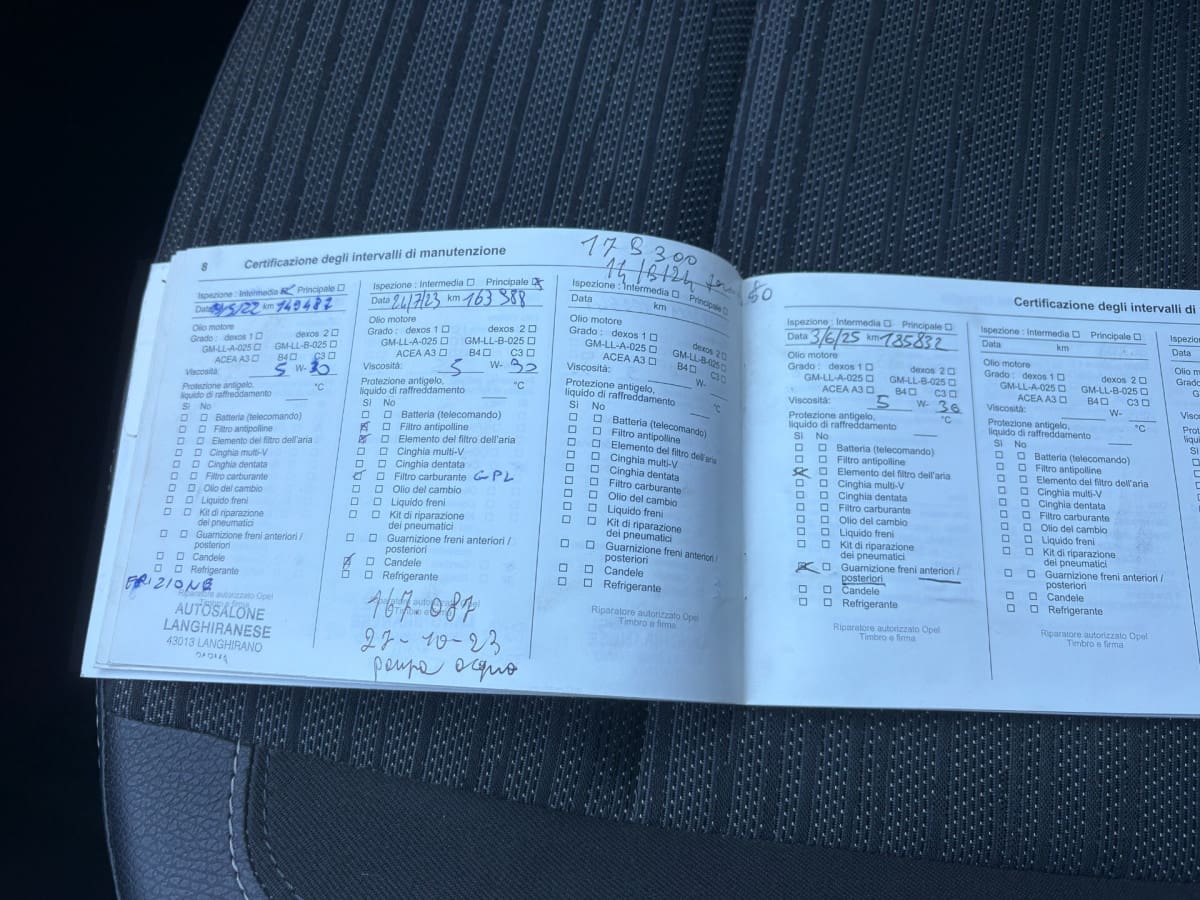 8 Certificazione degli intervalli di manutenzione
Ispezione : Intermedia ☒ Principale ☐
Data /5/22 km 149487
Olio motore
Grado : dexos 1 ☐ dexos 2 ☐
GM-LL-A-025 ☐ GM-LL-B-025 ☐
ACEA A3 ☐ B4 ☐ C3 ☐
Viscosità: 5 W- 30
Protezione antigelo,
liquido di raffreddamento °C
Sì No
☐ ☐ Batteria (telecomando)
☐ ☐ Filtro antipolline
☐ ☐ Elemento del filtro dell'aria
☐ ☐ Cinghia multi-V
☐ ☐ Cinghia dentata
☐ ☐ Filtro carburante
☐ ☐ Olio del cambio
☐ ☐ Liquido freni
☐ ☐ Kit di riparazione
dei pneumatici
☐ ☐ Guarnizione freni anteriori /
posteriori
☐ ☐ Candele
☐ ☐ Refrigerante
FRIZIONE
Riparatore autorizzato Opel
Timbro e firma
AUTOSALONE
LANGHIRANESE
43013 LANGHIRANO
Ispezione : Intermedia ☐ Principale ☒
Data 24/7/23 km 163388
Olio motore
Grado : dexos 1 ☐ dexos 2 ☐
GM-LL-A-025 ☐ GM-LL-B-025 ☐
ACEA A3 ☐ B4 ☐ C3 ☐
Viscosità: 5 W- 30
Protezione antigelo,
liquido di raffreddamento °C
Sì No
☐ ☐ Batteria (telecomando)
☒ ☐ Filtro antipolline
☒ ☐ Elemento del filtro dell'aria
☐ ☐ Cinghia multi-V
☐ ☐ Cinghia dentata
☒ ☐ Filtro carburante GPL
☐ ☐ Olio del cambio
☐ ☐ Liquido freni
☐ ☐ Kit di riparazione
dei pneumatici
☐ ☐ Guarnizione freni anteriori /
posteriori
☒ ☐ Candele
☐ ☐ Refrigerante
Riparatore autorizzato Opel
167.087
27-10-23
pompa acqua
Ispezione : Intermedia ☐ Principale ☐
Data km
Olio motore
Grado : dexos 1 ☐ dexos 2 ☐
GM-LL-A-025 ☐ GM-LL-B-025 ☐
ACEA A3 ☐ B4 ☐ C3 ☐
Viscosità: W-
Protezione antigelo,
liquido di raffreddamento °C
Sì No
☐ ☐ Batteria (telecomando)
☐ ☐ Filtro antipolline
☐ ☐ Elemento del filtro dell'aria
☐ ☐ Cinghia multi-V
☐ ☐ Cinghia dentata
☐ ☐ Filtro carburante
☐ ☐ Olio del cambio
☐ ☐ Liquido freni
☐ ☐ Kit di riparazione
dei pneumatici
☐ ☐ Guarnizione freni anteriori /
posteriori
☐ ☐ Candele
☐ ☐ Refrigerante
Riparatore autorizzato Opel
Timbro e firma
Certificazione degli intervalli di
Ispezione : Intermedia ☐ Principale ☐
Data 3/6/25 km 185832
Olio motore
Grado : dexos 1 ☐ dexos 2 ☐
GM-LL-A-025 ☐ GM-LL-B-025 ☐
ACEA A3 ☐ B4 ☐ C3 ☐
Viscosità: 5 W- 30
Protezione antigelo,
liquido di raffreddamento °C
Sì No
☐ ☐ Batteria (telecomando)
☐ ☐ Filtro antipolline
☒ ☐ Elemento del filtro dell'aria
☐ ☐ Cinghia multi-V
☐ ☐ Cinghia dentata
☐ ☐ Filtro carburante
☐ ☐ Olio del cambio
☐ ☐ Liquido freni
☐ ☐ Kit di riparazione
dei pneumatici
☒ ☐ Guarnizione freni anteriori /
posteriori
☐ ☐ Candele
☐ ☐ Refrigerante
Riparatore autorizzato Opel
Timbro e firma
Ispezione : Intermedia ☐ Principale ☐
Data km
Olio motore
Grado : dexos 1 ☐ dexos 2 ☐
GM-LL-A-025 ☐ GM-LL-B-025 ☐
ACEA A3 ☐ B4 ☐ C3 ☐
Viscosità: W-
Protezione antigelo,
liquido di raffreddamento °C
Sì No
☐ ☐ Batteria (telecomando)
☐ ☐ Filtro antipolline
☐ ☐ Elemento del filtro dell'aria
☐ ☐ Cinghia multi-V
☐ ☐ Cinghia dentata
☐ ☐ Filtro carburante
☐ ☐ Olio del cambio
☐ ☐ Liquido freni
☐ ☐ Kit di riparazione
dei pneumatici
☐ ☐ Guarnizione freni anteriori /
posteriori
☐ ☐ Candele
☐ ☐ Refrigerante
Riparatore autorizzato Opel
Timbro e firma